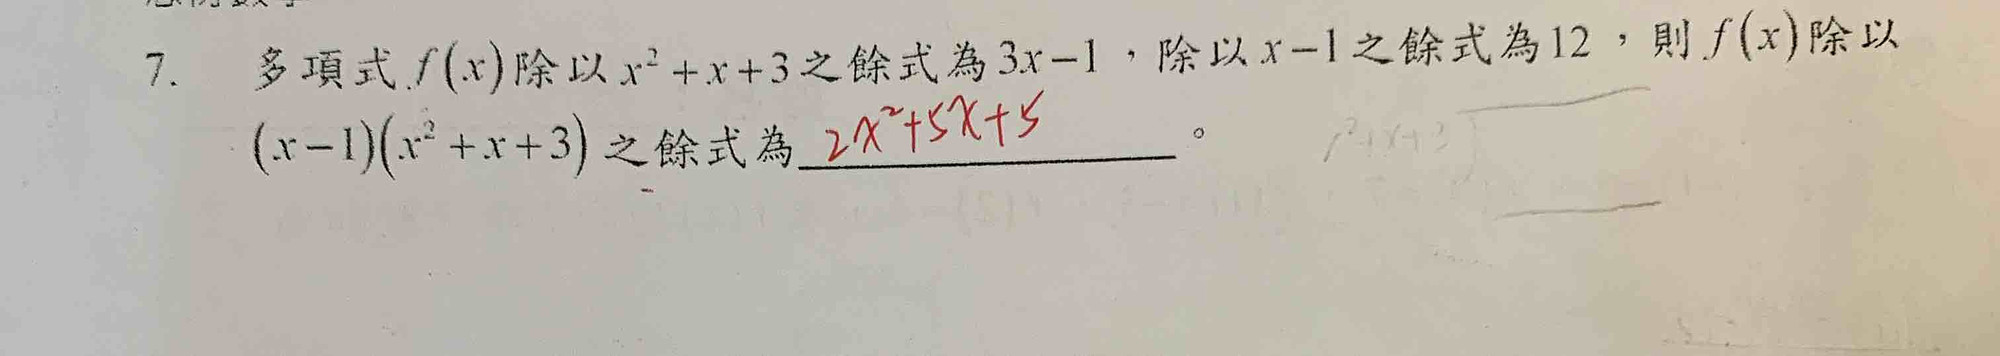 7. 多項式 f(x) 除以 x²+x+3 之餘式為 3x−1，除以 x−1 之餘式為 12，則 f(x) 除以
(x−1)(x²+x+3) 之餘式為 2x²+5x+5 。
x²+x+3